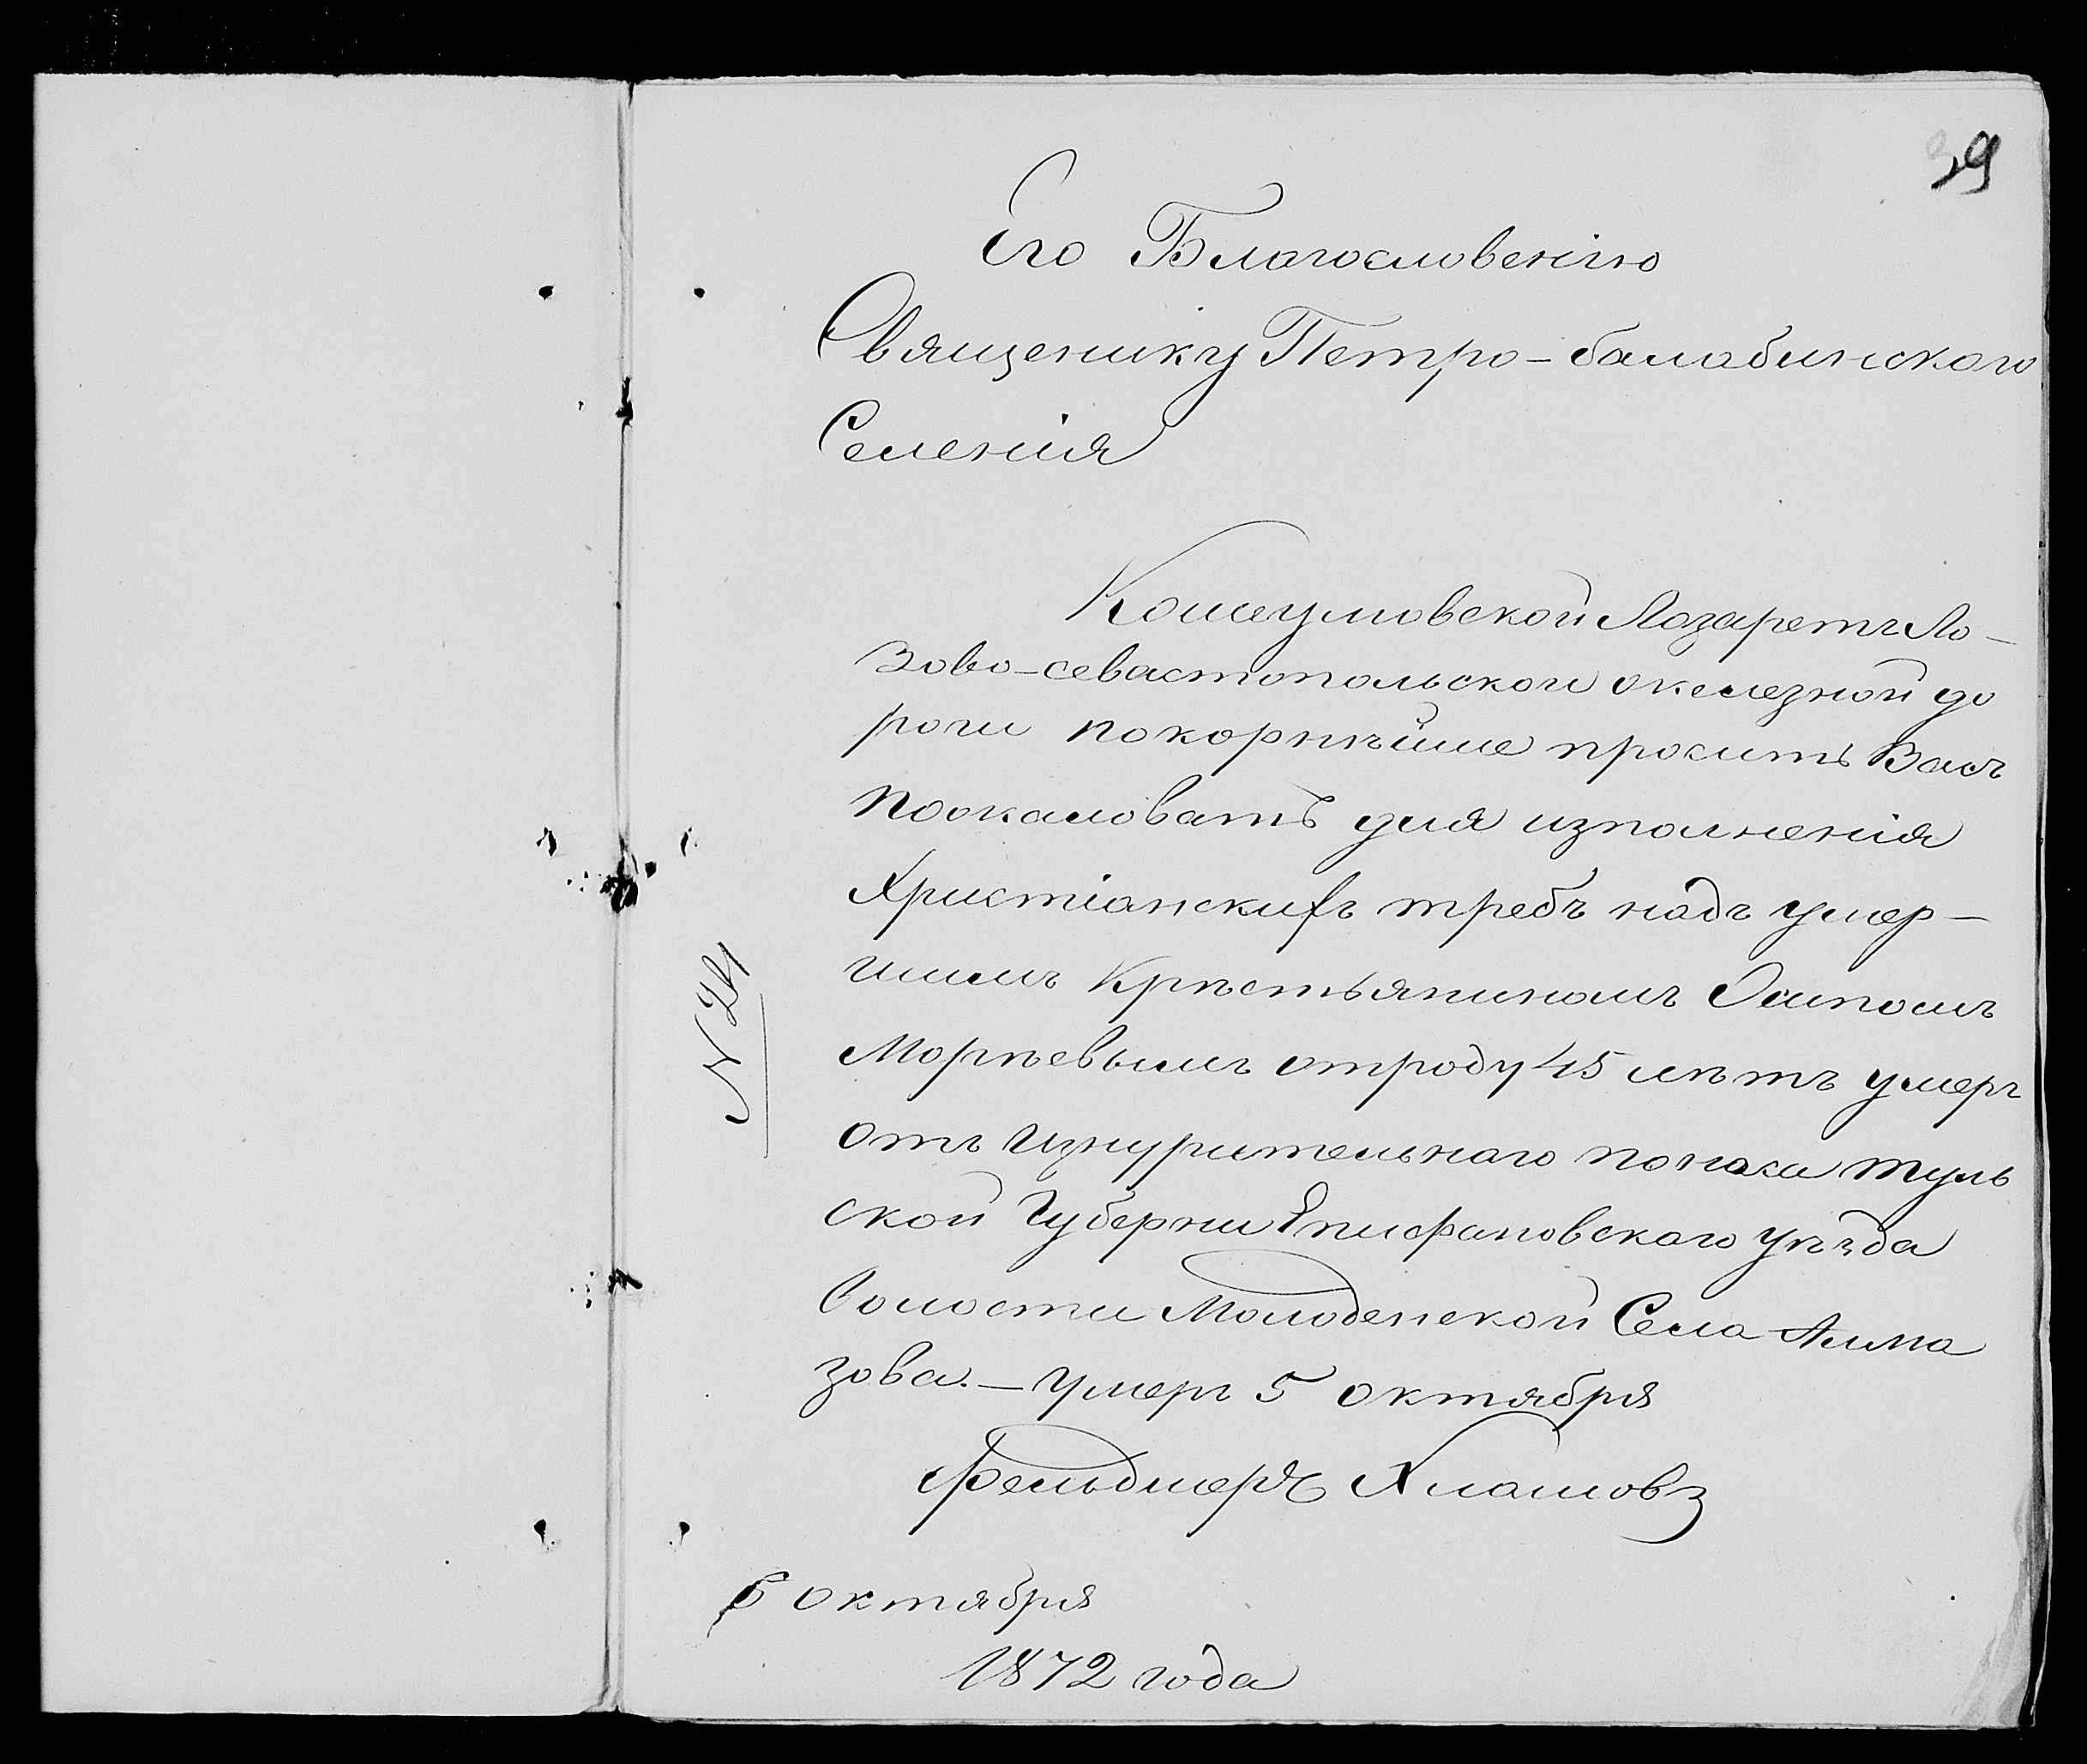 39
Его Благословенію
Священику Петро-балабинского
Селенія
Кошеумовской Лазаретъ Ло-
зово-севастопольской железной до
роги покорнѣйше просить Васъ
пожаловать для изполненія
Христіанскихъ требъ надъ умер-
шимъ Крѣстьяниномъ Осипомъ
Морѣевымъ отроду 45 лѣтъ умеръ
отъ изнурительнаго поноса туль
ской Губерни Епифановского уѣзда
волости Молоденской Села Алма
зова. - умеръ 5 октября
фельдшеръ Хлашовъ
N 24
6 октября
1872 года